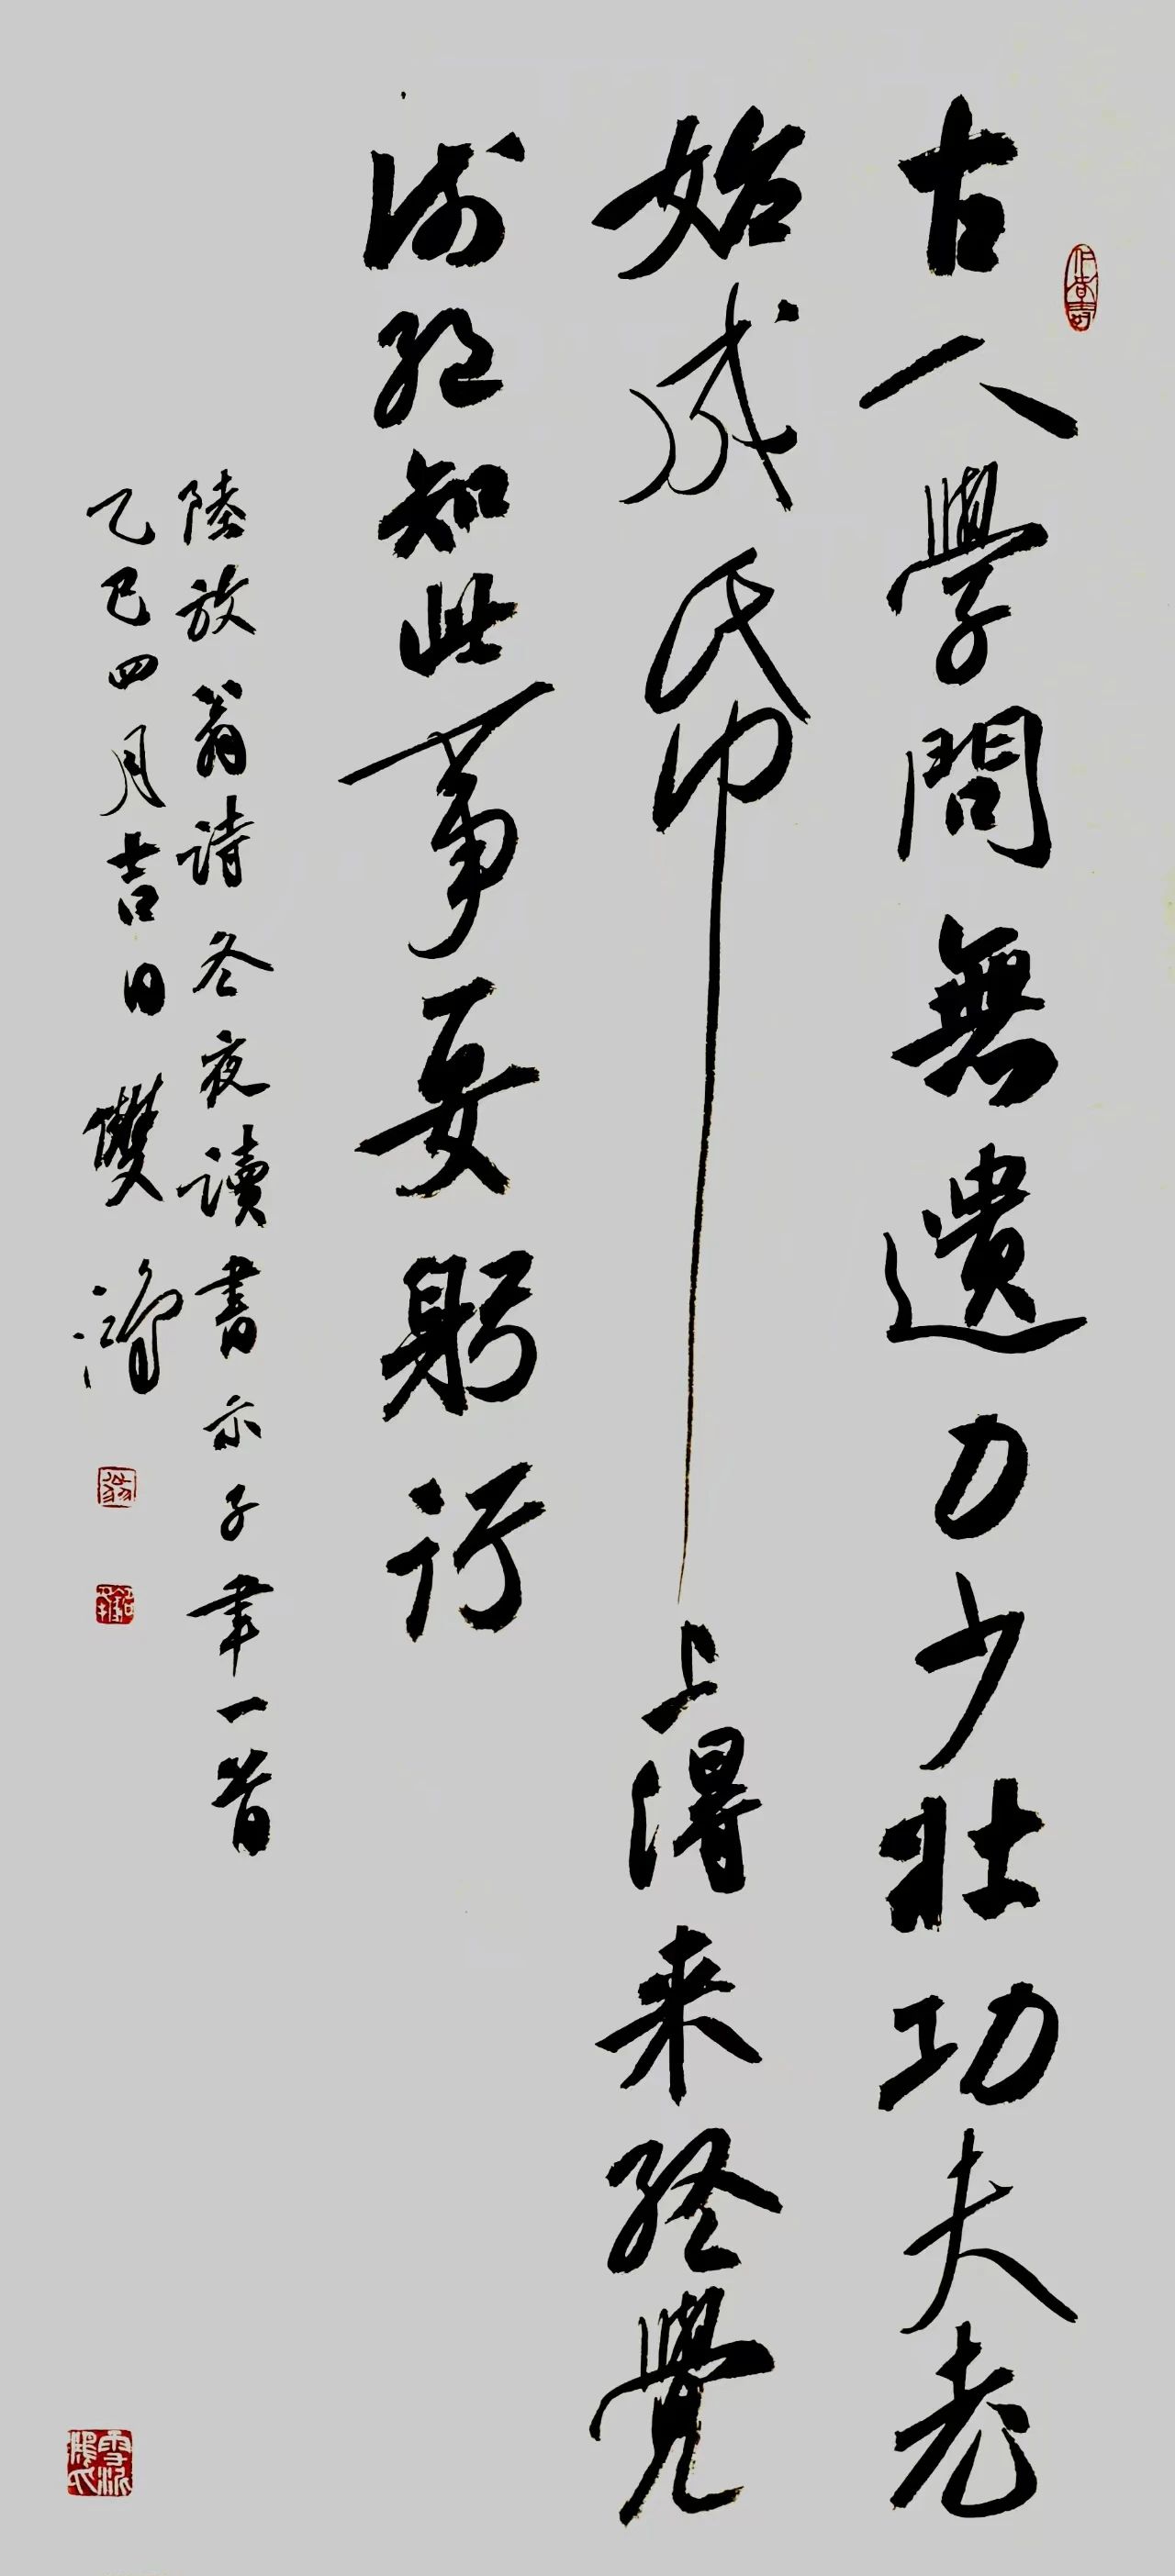 仁者壽
古人學問無遺力少壯功夫老
始成帋上得来終覺
淺絶知此事要躬行
陸放翁詩冬夜讀書示子聿一首
乙巳四月吉日雙
雪泥鴻爪